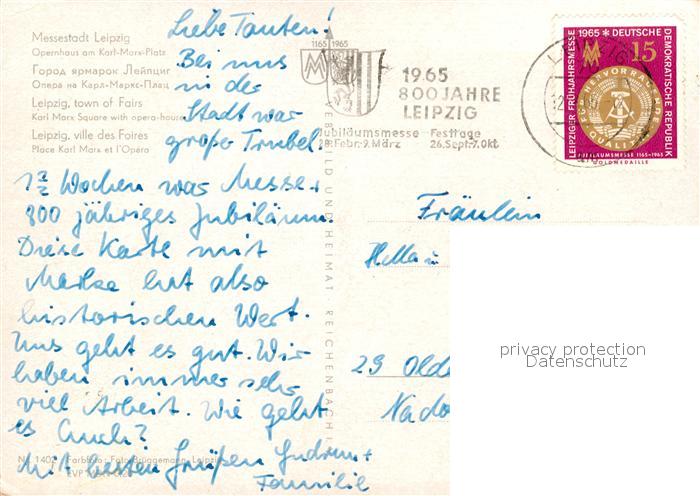 Messestadt Leipzig
Opernhaus am Karl-Marx-Platz
Город ярмарок Лейпциг
Опера на Карл-Маркс-Плац
Leipzig, town of Fairs
Karl Marx Square with opera-house
Leipzig, ville des Foires
Place Karl Marx et l'Opéra
Liebe Tanten!
Bei uns
in der
Stadt war
großer Trubel.
1 1/2 Wochen war Messe.
800 jähriges Jubiläum.
Diese Karte mit
Marke hat also
historischen Wert.
Uns geht es gut. Wir
haben immer sehr
viel Arbeit. Wie geht
es Euch?
Mit besten Grüßen Gudrun +
Familie
Farbfoto: Foto-Brüggemann, Leipzig
VERLAG BILD UND HEIMAT REICHENBACH I.
1165 1965
1965
800 JAHRE
LEIPZIG
Jubiläumsmesse Festtage
28.Febr.-9.März 26.Sept.-7.Okt.
LEIPZIGER FRÜHJAHRSMESSE
1965 ★ DEUTSCHE
DEMOKRATISCHE REPUBLIK
15
FÜR HERVORRAGENDE
QUALITÄT
JUBILÄUMSMESSE 1165-1965
GOLDMEDAILLE
Fräulein
Hella
29 Olde
Nado
privacy protection
Datenschutz